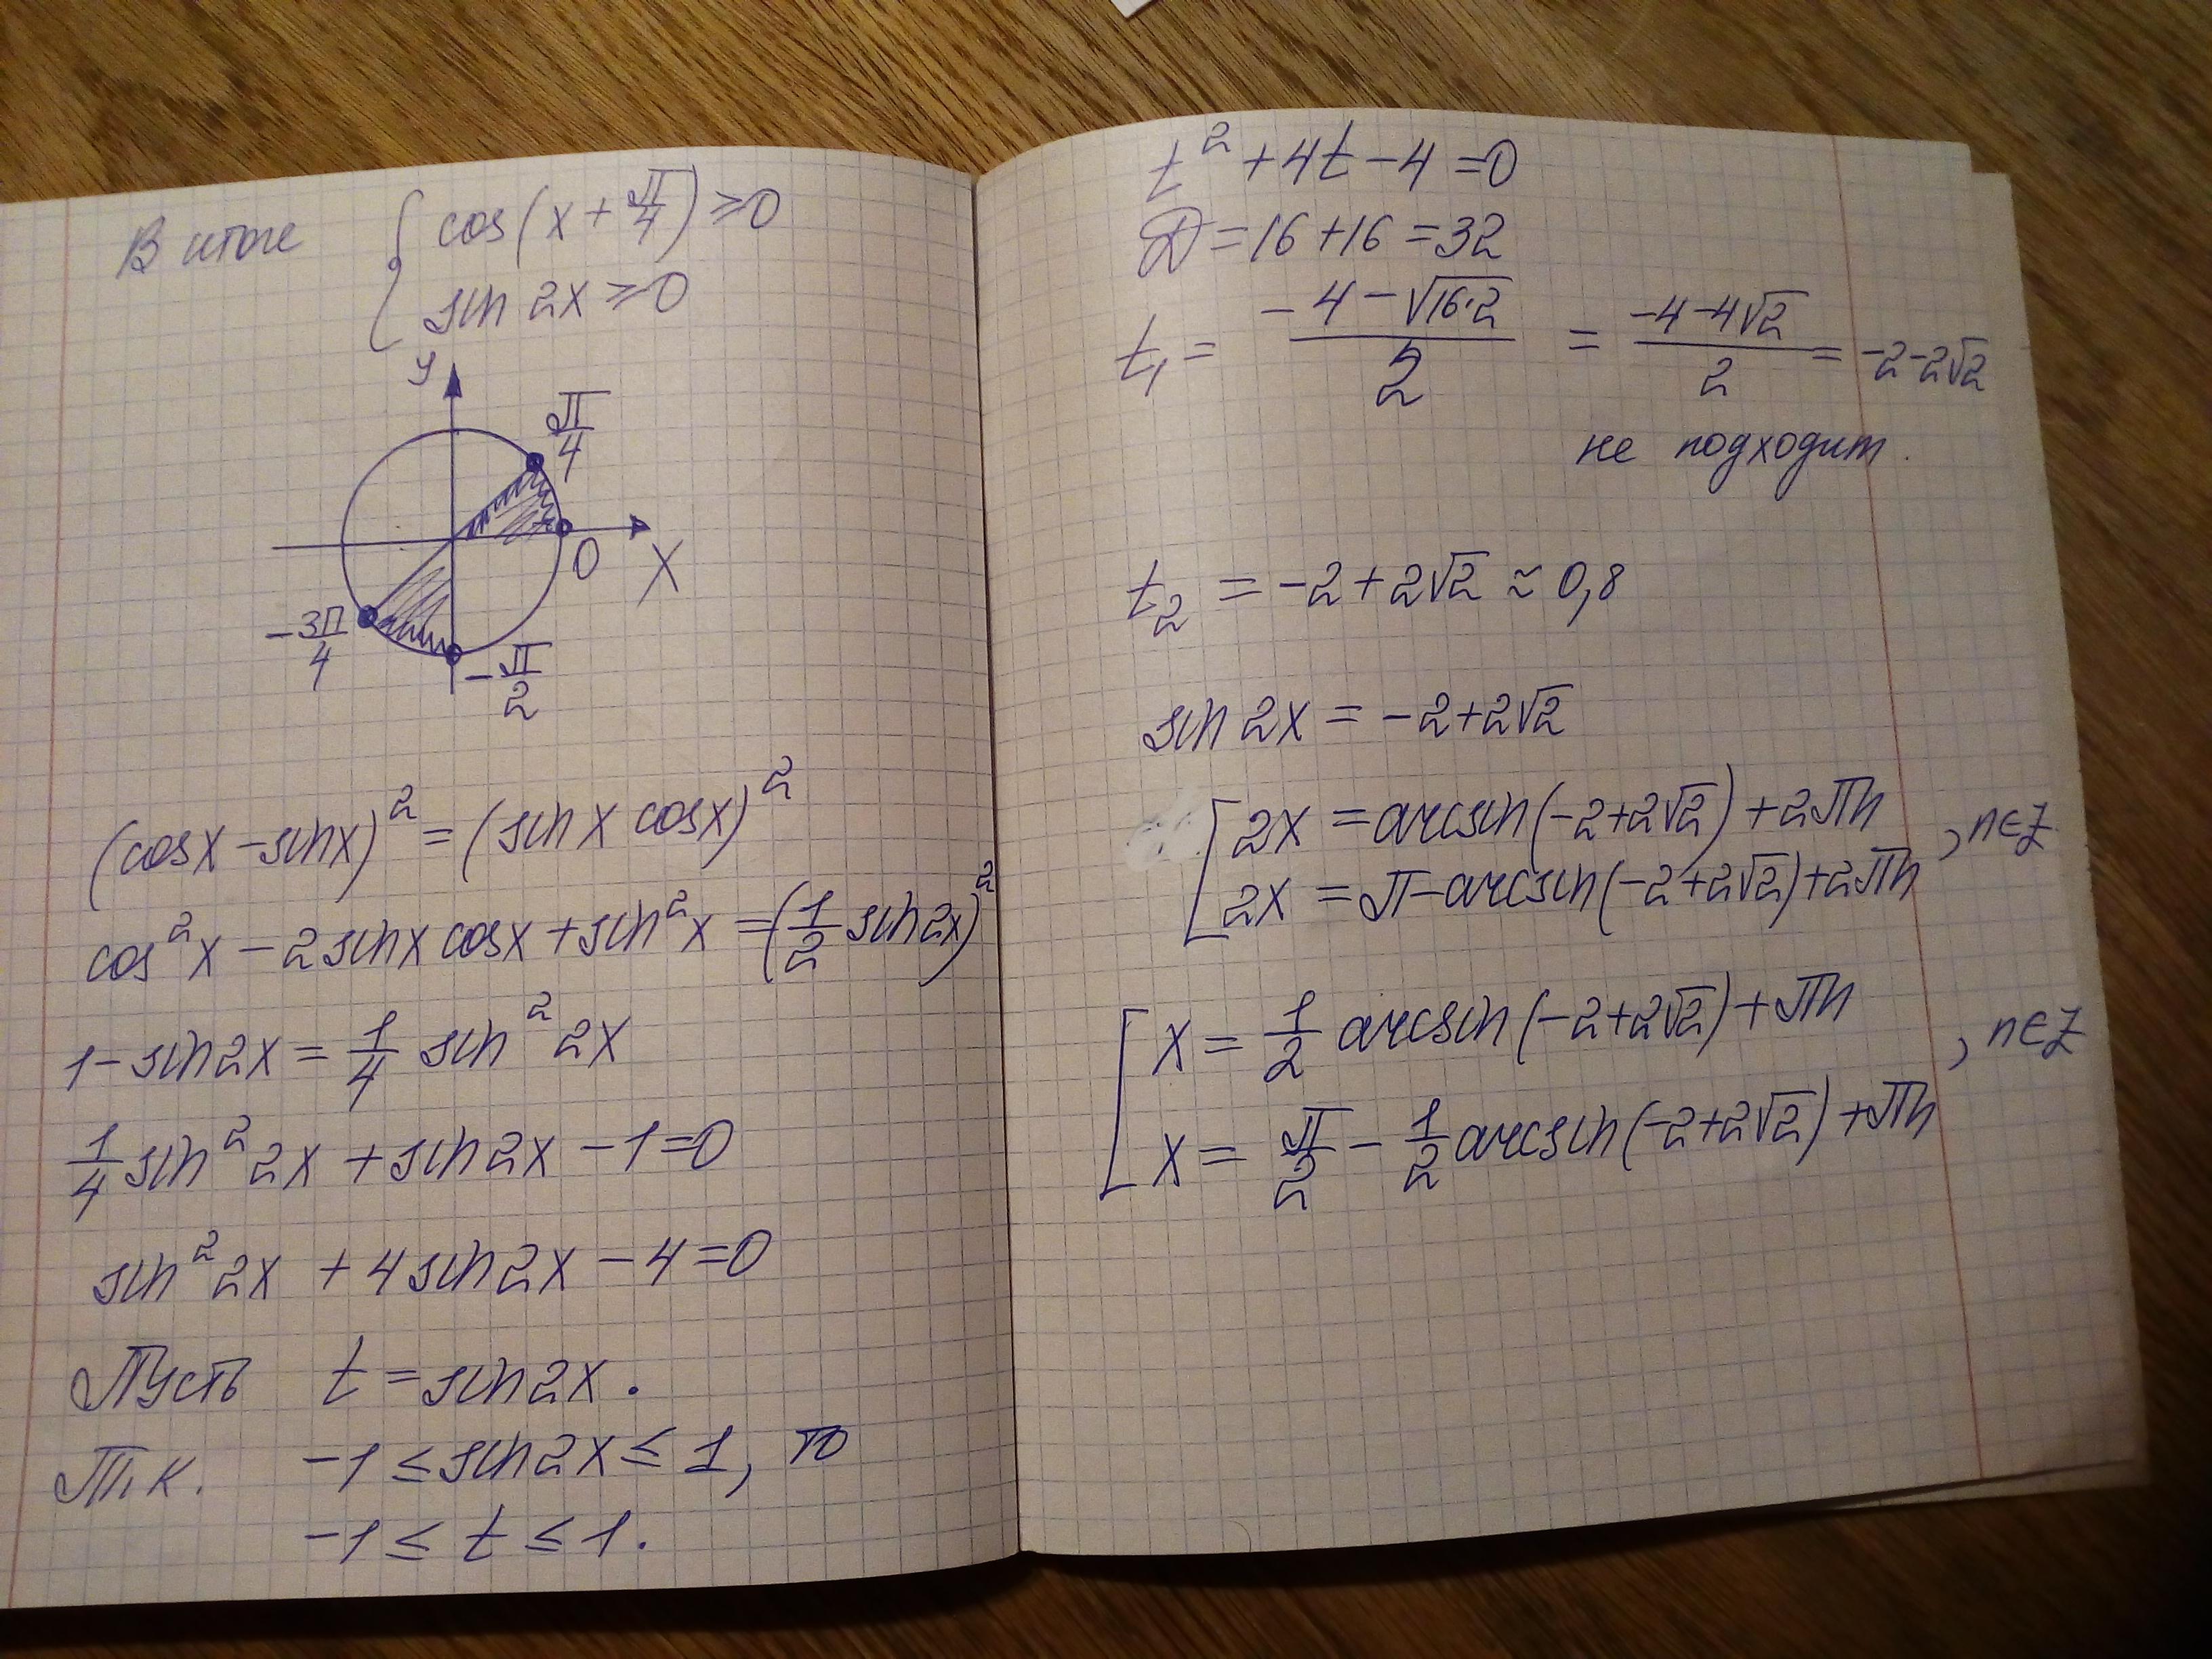 В итоге { cos(x + π/4) ≥ 0
sin 2x ≥ 0
y
π/4
0
X
-3π/4
-π/2
(cosx - sinx)² = (sinx cosx)²
cos²x - 2sinx cosx + sin²x = (1/2 sin2x)²
1 - sin2x = 1/4 sin²2x
1/4 sin²2x + sin2x - 1 = 0
sin²2x + 4sin2x - 4 = 0
Пусть t = sin2x.
Т.к. -1 ≤ sin2x ≤ 1, то
-1 ≤ t ≤ 1.
t² + 4t - 4 = 0
D = 16 + 16 = 32
t₁ = (-4 - √(16·2))/2 = (-4 - 4√2)/2 = -2 - 2√2
не подходит.
t₂ = -2 + 2√2 ≈ 0,8
sin 2x = -2 + 2√2
[ 2x = arcsin(-2 + 2√2) + 2πn
2x = π - arcsin(-2 + 2√2) + 2πn , n∈Z
[ x = 1/2 arcsin(-2 + 2√2) + πn
x = π/2 - 1/2 arcsin(-2 + 2√2) + πn , n∈Z